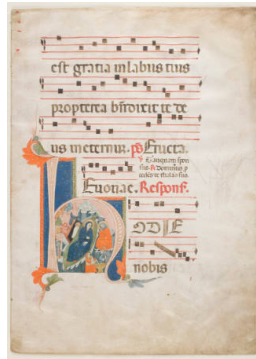 est gratia in labiis tuis
propterea bñdixit te de
us in eternum. ps Eructa.
Euouae. Respons.
HODIE
nobis